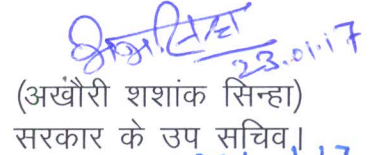 23.01.17
(अखौरी शशांक सिन्हा)
सरकार के उप सचिव।